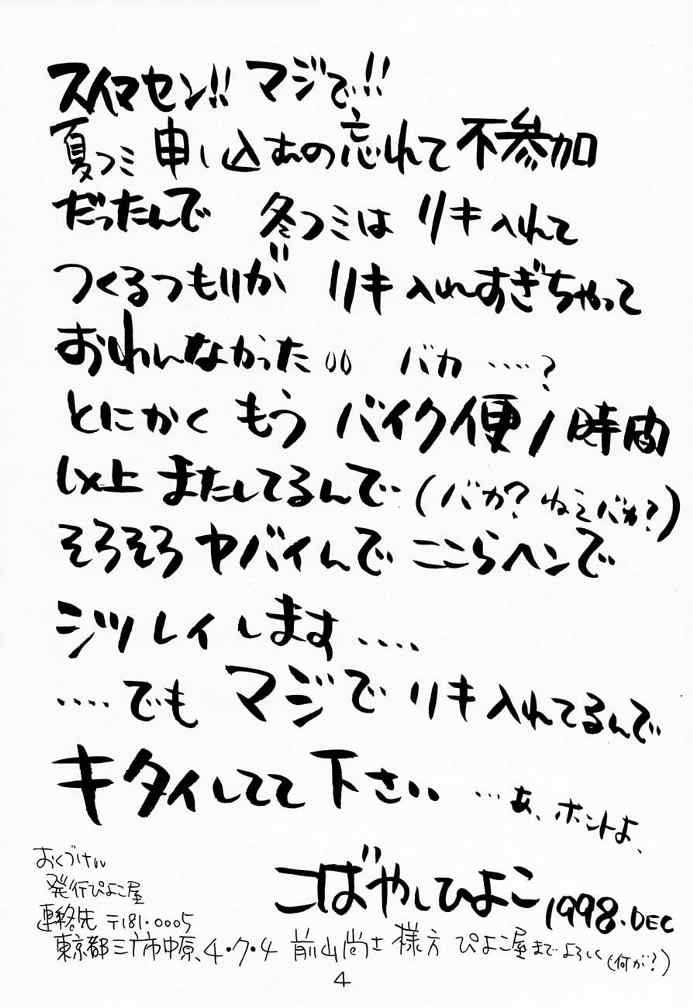 スイマセン!! マジで!!
夏コミ 申し込むの忘れて 不参加
だったんで 冬コミは リキ入れて
つくるつもりが リキ入れすぎちゃって
おわんなかった00 バカ ‥‥?
とにかく もう バイク便 1時間
以上 またしてるんで (バカ? ねえバカ?)
そろそろ ヤバイんで ここらヘンで
シツレイします ‥‥
‥‥でも マジで リキ入れてるんで
キタイしてて下さい …あ、ホントよ、
こばやしひよこ 1998.DEC
おくづけい
発行ぴよこ屋
連絡先 〒181・0005
東京都三鷹市中原、4・7・4 前山尚士 様方 ぴよこ屋まで よろしく (何が?)
4